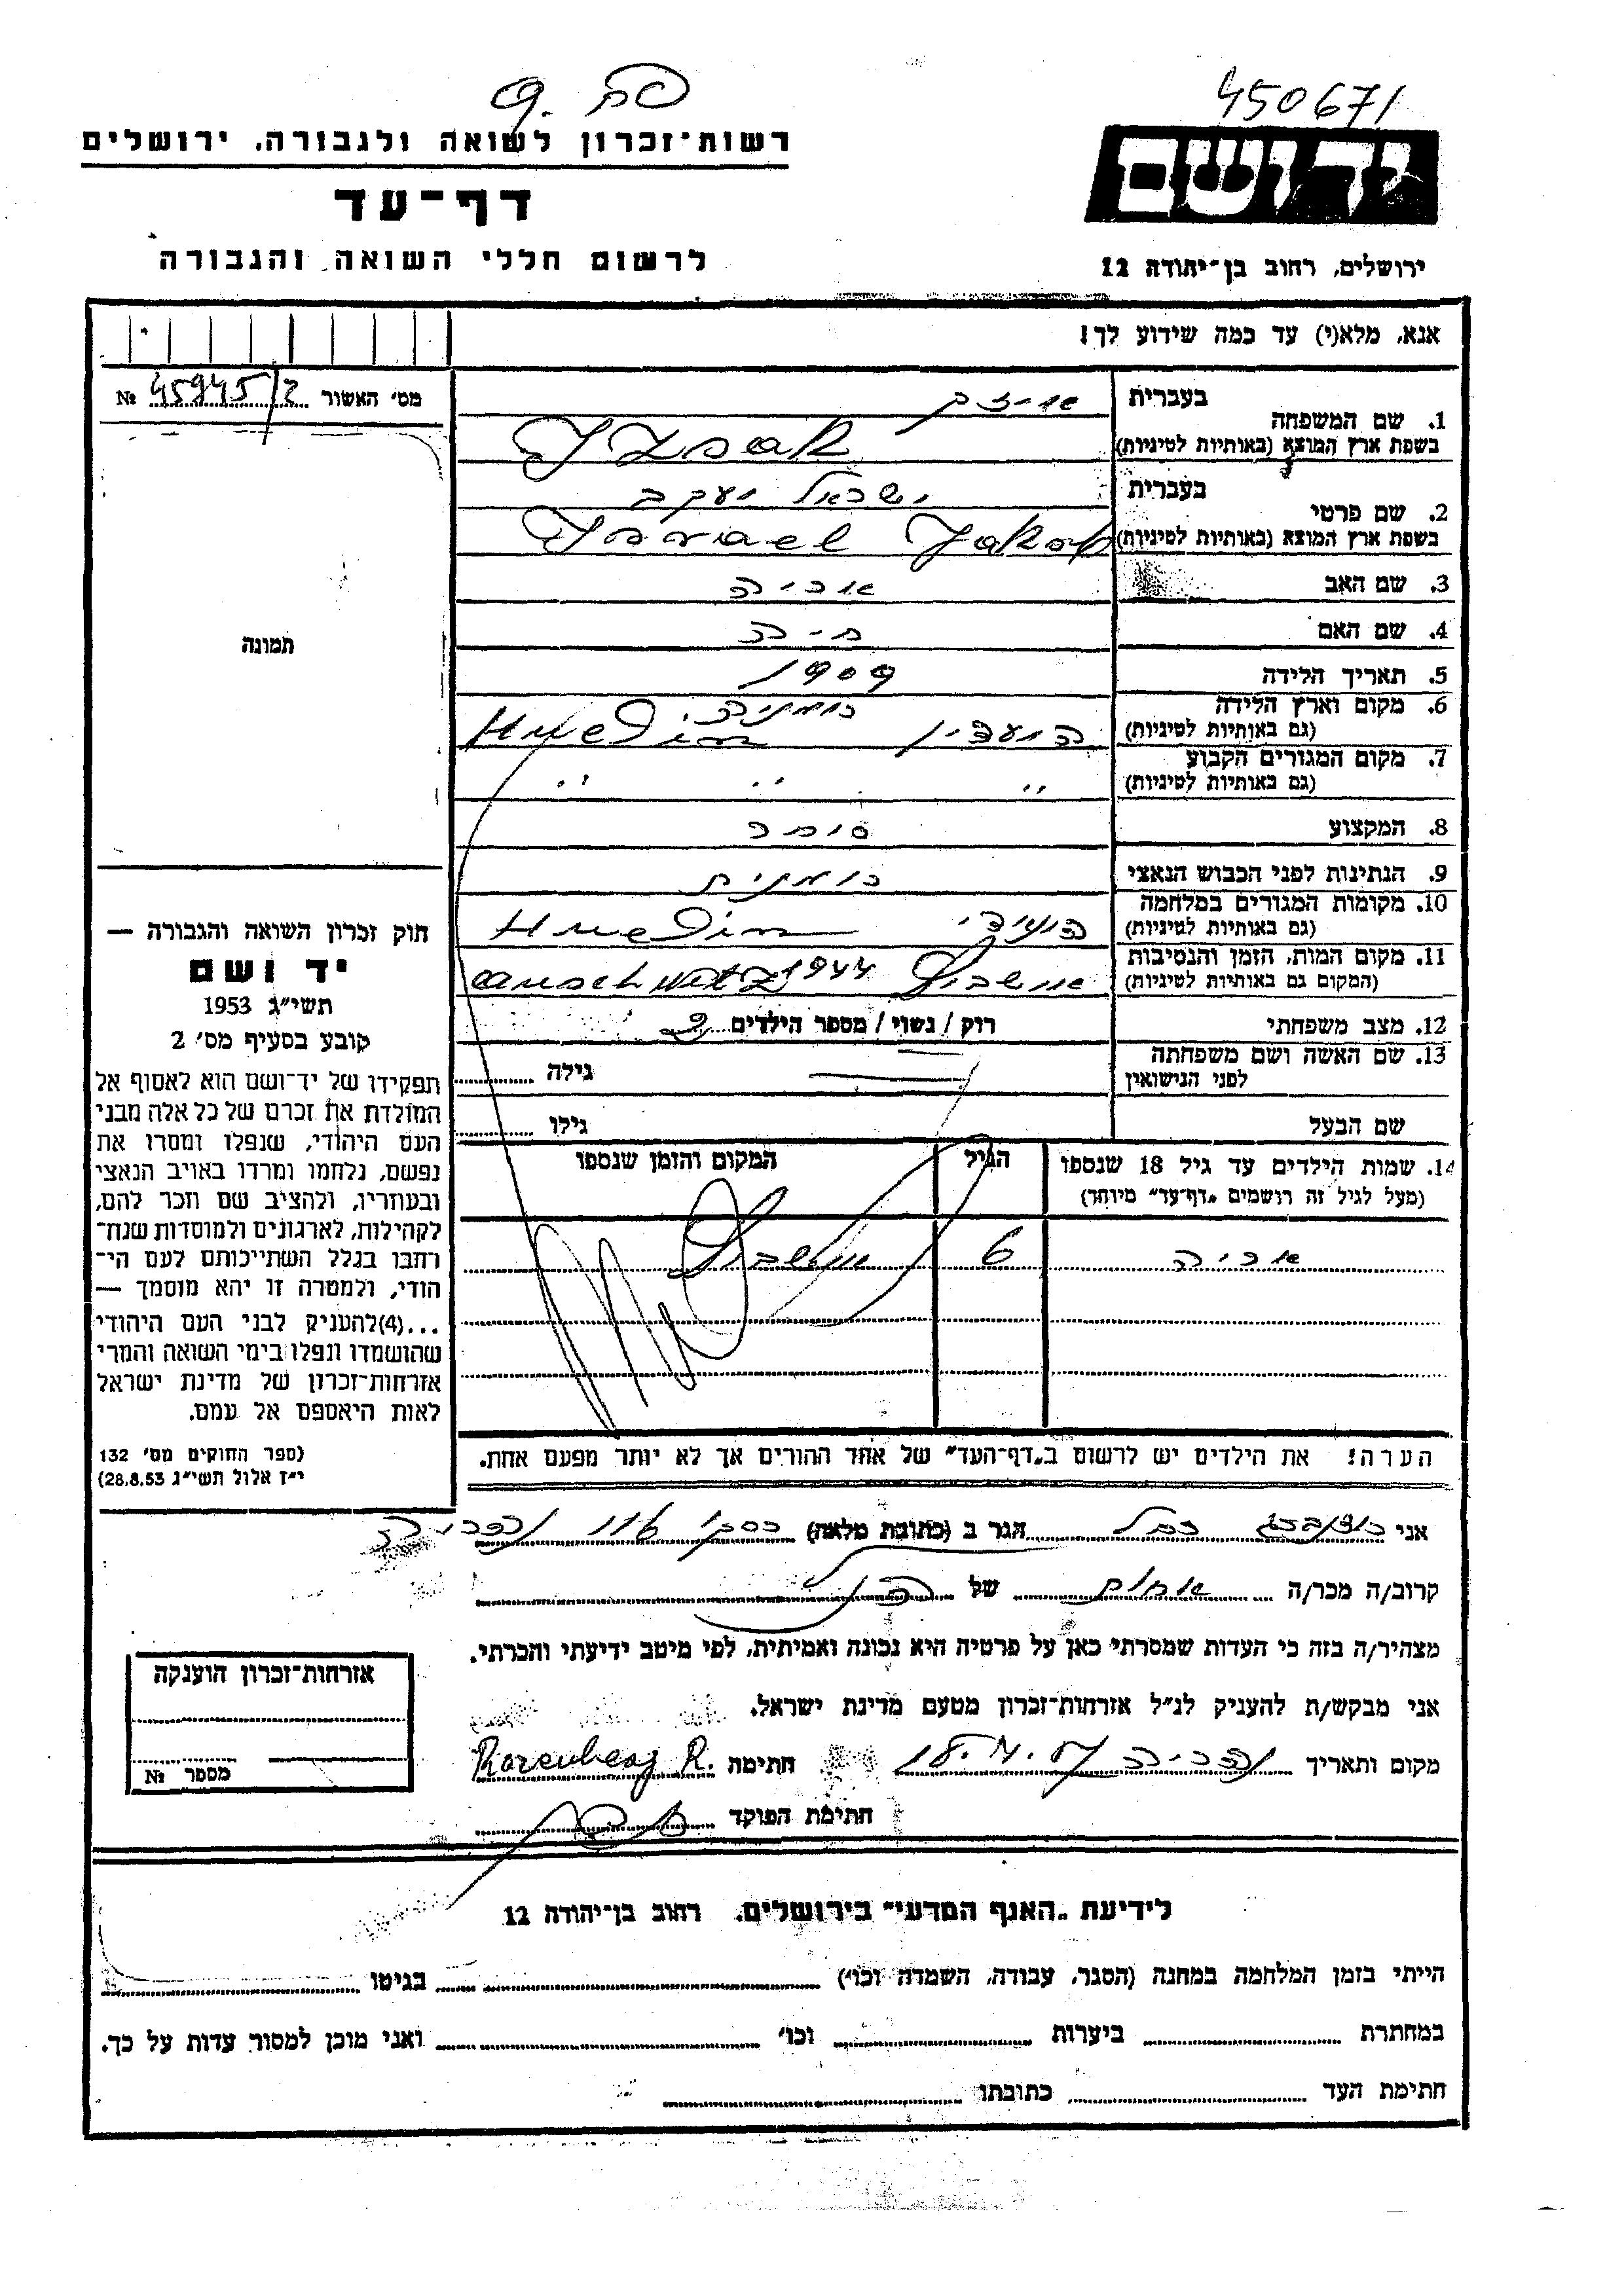 450671
יד ושם
ירושלים, רחוב בן־יהודה 12
רשות־זכרון לשואה ולגבורה, ירושלים
דף־עד
לרשום חללי השואה והגבורה
אנא, מלא(י) עד כמה שידוע לך!
מס' האשור 45945/2 №
תמונה
1. שם המשפחה
בעברית
בשפת ארץ המוצא (באותיות לטיניות) Izsak
2. שם פרטי
בעברית ישראל יעקב
בשפת ארץ המוצא (באותיות לטיניות) Israel Jakob
3. שם האב אריה
4. שם האם חיה
5. תאריך הלידה 1909
6. מקום וארץ הלידה רומניה
(גם באותיות לטיניות) הועדין Huedin
7. מקום המגורים הקבוע
(גם באותיות לטיניות) " " "
8. המקצוע סוחר
9. הנתינות לפני הכבוש הנאצי רומנית
10. מקומות המגורים במלחמה
(גם באותיות לטיניות) Huedin
11. מקום המות, הזמן והנסיבות
(המקום גם באותיות לטיניות) אושביץ 1944 auschwitz
12. מצב משפחתי רוק / נשוי / מספר הילדים 2
13. שם האשה ושם משפחתה
לפני הנישואין גילה
שם הבעל גילו
14. שמות הילדים עד גיל 18 שנספו
(מעל לגיל זה רושמים "דף־עד" מיוחד)
הגיל
המקום והזמן שנספו
אריה 6 אושביץ
הערה! את הילדים יש לרשום ב"דף־העד" של אחד ההורים אך לא יותר מפעם אחת.
חוק זכרון השואה והגבורה —
יד ושם
תשי"ג 1953
קובע בסעיף מס' 2
תפקידו של יד־ושם הוא לאסוף אל
המולדת את זכרם של כל אלה מבני
העם היהודי, שנפלו ומסרו את
נפשם, נלחמו ומרדו באויב הנאצי
ובעוזריו, ולהציב שם וזכר להם,
לקהילות, לארגונים ולמוסדות שנח־
רבו בגלל השתייכותם לעם הי־
הודי, ולמטרה זו יהא מוסמך —
...(4) להעניק לבני העם היהודי
שהושמדו ונפלו בימי השואה והמרי
אזרחות־זכרון של מדינת ישראל
לאות היאספם אל עמם.
(ספר החוקים מס' 132
י"ז אלול תשי"ג 28.8.53)
אני רוזנברג רחל הגר ב (כתובת מלאה) נהריה
קרוב/ה מכר/ה אחות של
מצהיר/ה בזה כי העדות שמסרתי כאן על פרטיה היא נכונה ואמיתית, לפי מיטב ידיעתי והכרתי.
אני מבקש/ת להעניק לנ"ל אזרחות־זכרון מטעם מדינת ישראל.
מקום ותאריך נהריה חתימה Rosenberg R.
חתימת הפוקד
אזרחות־זכרון הוענקה
מספר №
לידיעת "האגף המדעי" בירושלים, רחוב בן־יהודה 12
הייתי בזמן המלחמה במחנה (הסגר, עבודה, השמדה וכו') בגיטו
במחתרת ביערות וכו' ואני מוכן למסור עדות על כך.
חתימת העד כתובתו